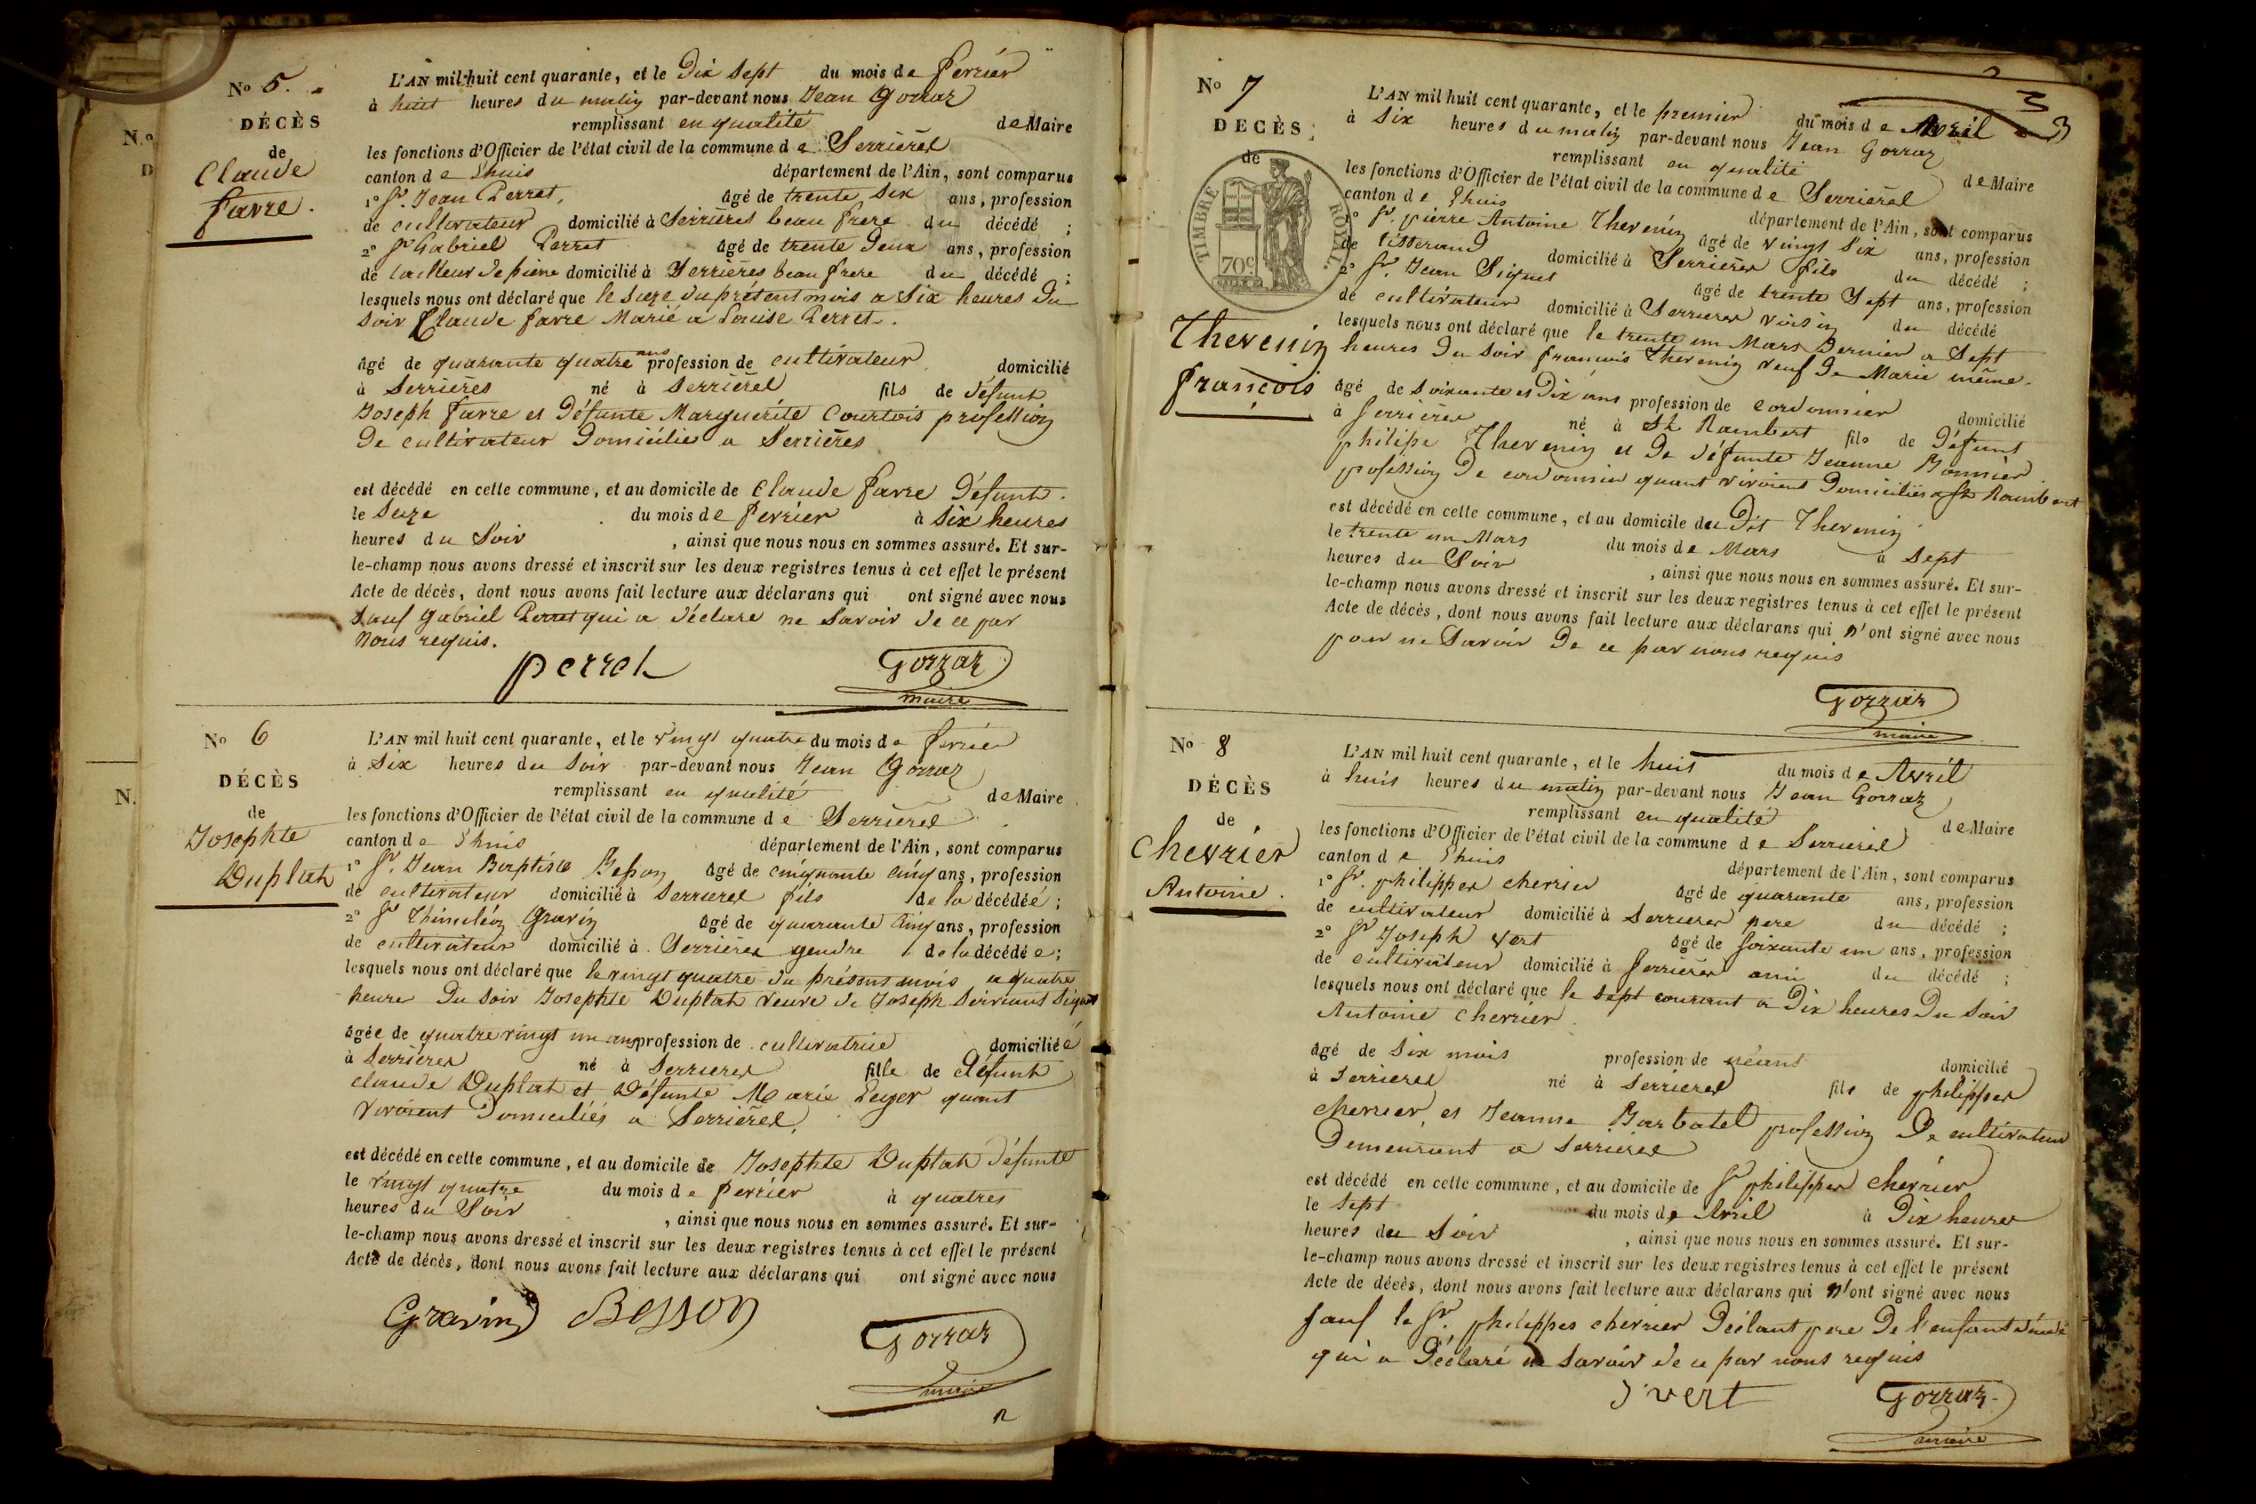 No 5.
DÉCÈS
de
Claude
favre.
L'AN mil huit cent quarante, et le Dix Sept du mois de fevrier
à huit heures du matin par-devant nous Jean Gorraz
remplissant en qualité de Maire
les fonctions d'Officier de l'état civil de la commune de Serrieres
canton de Lhuis département de l'Ain, sont comparus
1° Sr. Jean Perret, âgé de trente six ans, profession
de cultivateur domicilié à Serrieres beau frere du décédé ;
2° Sr Gabriel Perret âgé de trente Deux ans, profession
de tailleur de pierre domicilié à Serrieres beau frere du décédé ;
lesquels nous ont déclaré que le Seize du présent mois a Six heures du
Soir Claude favre Marié a Louise Perret.
âgé de quarante quatre ans profession de cultivateur domicilié
à Serrieres né à Serrieres fils de défunt
Joseph favre et défunte Marguerite Courtois profession
De cultivateur Domicilié a Serrières
est décédé en cette commune, et au domicile de Claude favre Défunt.
le Seize du mois de fevrier à Six heures
heures du Soir , ainsi que nous nous en sommes assuré. Et sur-
le-champ nous avons dressé et inscrit sur les deux registres tenus à cet effet le présent
Acte de décès, dont nous avons fait lecture aux déclarans qui ont signé avec nous
Sauf Gabriel Perret qui a déclaré ne Savoir de ce par
Nous requis.
perret Gorraz
maire
No 6
DÉCÈS
de
Josephte
Duplat
L'AN mil huit cent quarante, et le vingt quatre du mois de fevrier
à Six heures du Soir par-devant nous Jean Gorraz
remplissant en qualité de Maire
les fonctions d'Officier de l'état civil de la commune de Serrieres
canton de Lhuis département de l'Ain, sont comparus
1° Sr. Jean Baptiste Beson âgé de cinquante cinq ans, profession
de cultivateur domicilié à Serrieres fils de la décédée ;
2° Sr Gravin âgé de quarante cinq ans, profession
de cultivateur domicilié à Serrieres gendre de la décédée ;
lesquels nous ont déclaré que le vingt quatre du présent mois a quatre
heure Du Soir Josephte Duplat veuve de Joseph
âgée de quatre vingt un ans profession de cultivatrice domiciliée
à Serrieres né à Serrieres fille de défunt
claude Duplat et Défunte Marie Leger quant
vivoient Domiciliés a Serrieres,
est décédé en cette commune, et au domicile de Josephte Duplat défunte
le vingt quatre du mois de fevrier à quatres
heures du Soir , ainsi que nous nous en sommes assuré. Et sur-
le-champ nous avons dressé et inscrit sur les deux registres tenus à cet effet le présent
Acte de décès, dont nous avons fait lecture aux déclarans qui ont signé avec nous
Gravin Besson Gorraz
maire
3
No 7
DECÈS
de
TIMBRE ROYAL.
70c
Thevenin
françois
L'AN mil huit cent quarante, et le premier du mois de Avril
à Six heures du matin par-devant nous Jean Gorraz
remplissant en qualité de Maire
les fonctions d'Officier de l'état civil de la commune de Serrieres
canton de Lhuis département de l'Ain, sont comparus
1° Sr. pierre Antoine Thevenin âgé de vingt Six ans, profession
de tisserand domicilié à Serrieres fils du décédé ;
2° Sr. Jean Siguet âgé de trente Sept ans, profession
de cultivateur domicilié à Serrieres voisin du décédé
lesquels nous ont déclaré que le trente un Mars Dernier a Sept
heures Du Soir francois Thevenin veuf De Marie même.
âgé de Soixante et Dix ans profession de cordonnier domicilié
à Serrieres né à St Rambert fils de Défunt
philipe Thevenin et De défunte Jeanne Bonnier
profession De cordonnier quant vivoient Domiciliés a St Rambert
est décédé en cette commune, et au domicile du Dit Thevenin
le trente un Mars du mois de Mars à Sept
heures du Soir , ainsi que nous nous en sommes assuré. Et sur-
le-champ nous avons dressé et inscrit sur les deux registres tenus à cet effet le présent
Acte de décès, dont nous avons fait lecture aux déclarans qui n'ont signé avec nous
pour ne Savoir De ce par nous requis
Gorraz
maire
No 8
DÉCÈS
de
Chevrier
Antoine.
L'AN mil huit cent quarante, et le huit du mois de Avril
à huit heures du matin par-devant nous Jean Gorraz
remplissant en qualité de Maire
les fonctions d'Officier de l'état civil de la commune de Serrieres
canton de Lhuis département de l'Ain, sont comparus
1° Sr. philippes chevrier âgé de quarante ans, profession
de cultivateur domicilié à Serrieres pere du décédé ;
2° Sr Joseph vert âgé de Soixante un ans, profession
de cultivateur domicilié à Serrieres ami du décédé ;
lesquels nous ont déclaré que le sept courant a Dix heures Du Soir
Antoine chevrier
âgé de Six mois profession de néant domicilié
à Serrieres né à Serrieres fils de philippes
chevrier et Jeanne Barbatel profession De cultivateur
Demeurant a Serrieres
est décédé en cette commune, et au domicile de Sr philippes chevrier
le Sept du mois de Avril à Dix heures
heures du Soir , ainsi que nous nous en sommes assuré. Et sur-
le-champ nous avons dressé et inscrit sur les deux registres tenus à cet effet le présent
Acte de décès, dont nous avons fait lecture aux déclarans qui n'ont signé avec nous
Sauf le Sr. philippes chevrier Déclant pere De l'enfant
qui a Déclaré ne Savoir de ce par nous requis
J vert Gorraz
maire